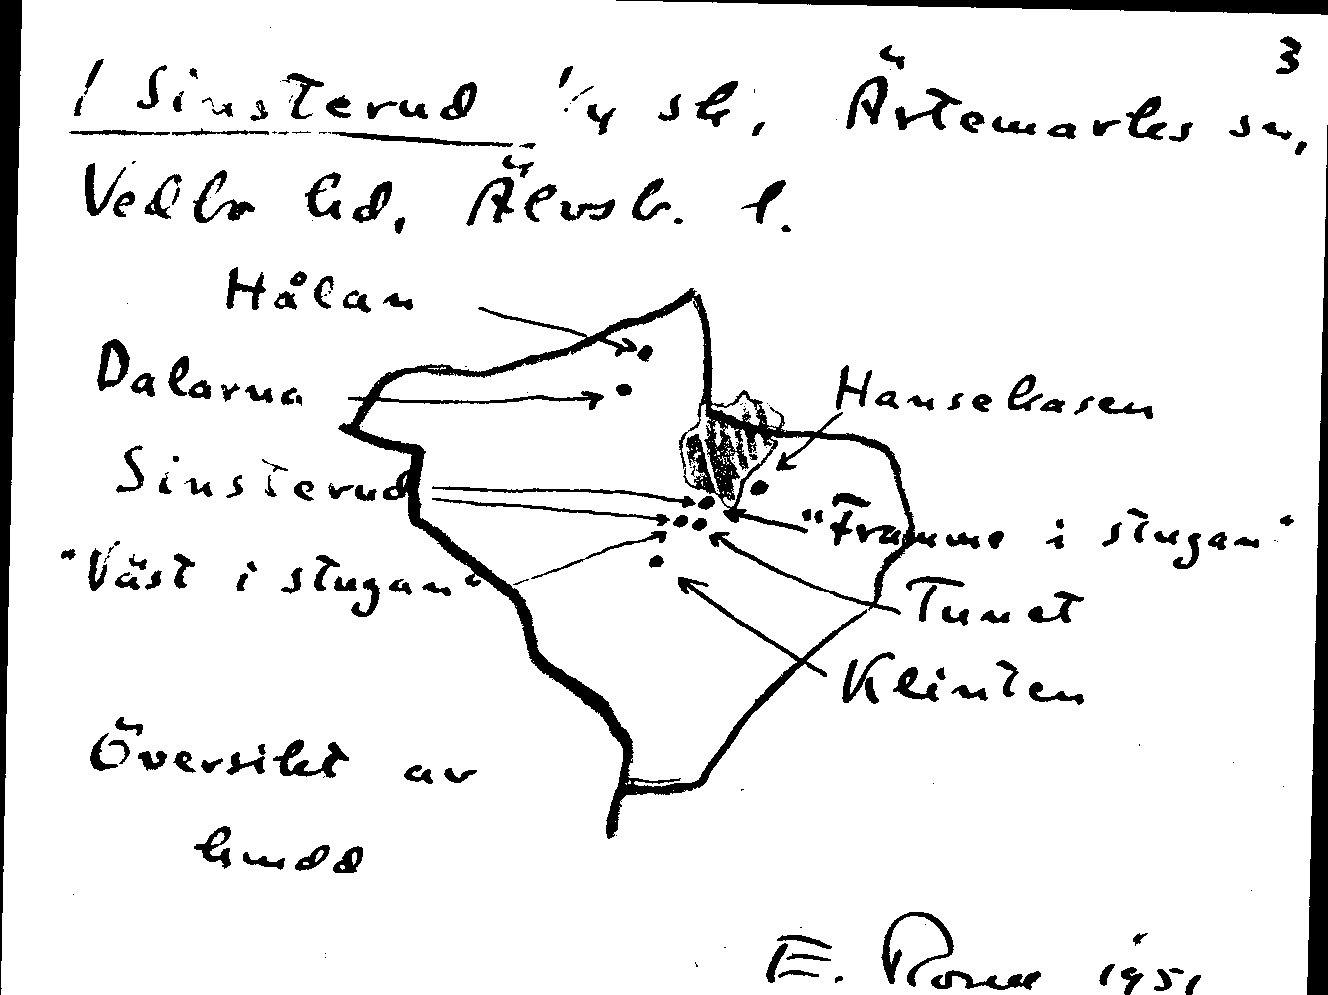 3
/ Sinsterud 1/4 sk, Ärtemarks sn,
Vedbo hd, Älvsb. l.
Hålan
Dalarna
Hansekasen
Sinsterud
"Framme i stugan"
"Väst i stugan"
Tunet
Klinten
Översikt av
E. 1951